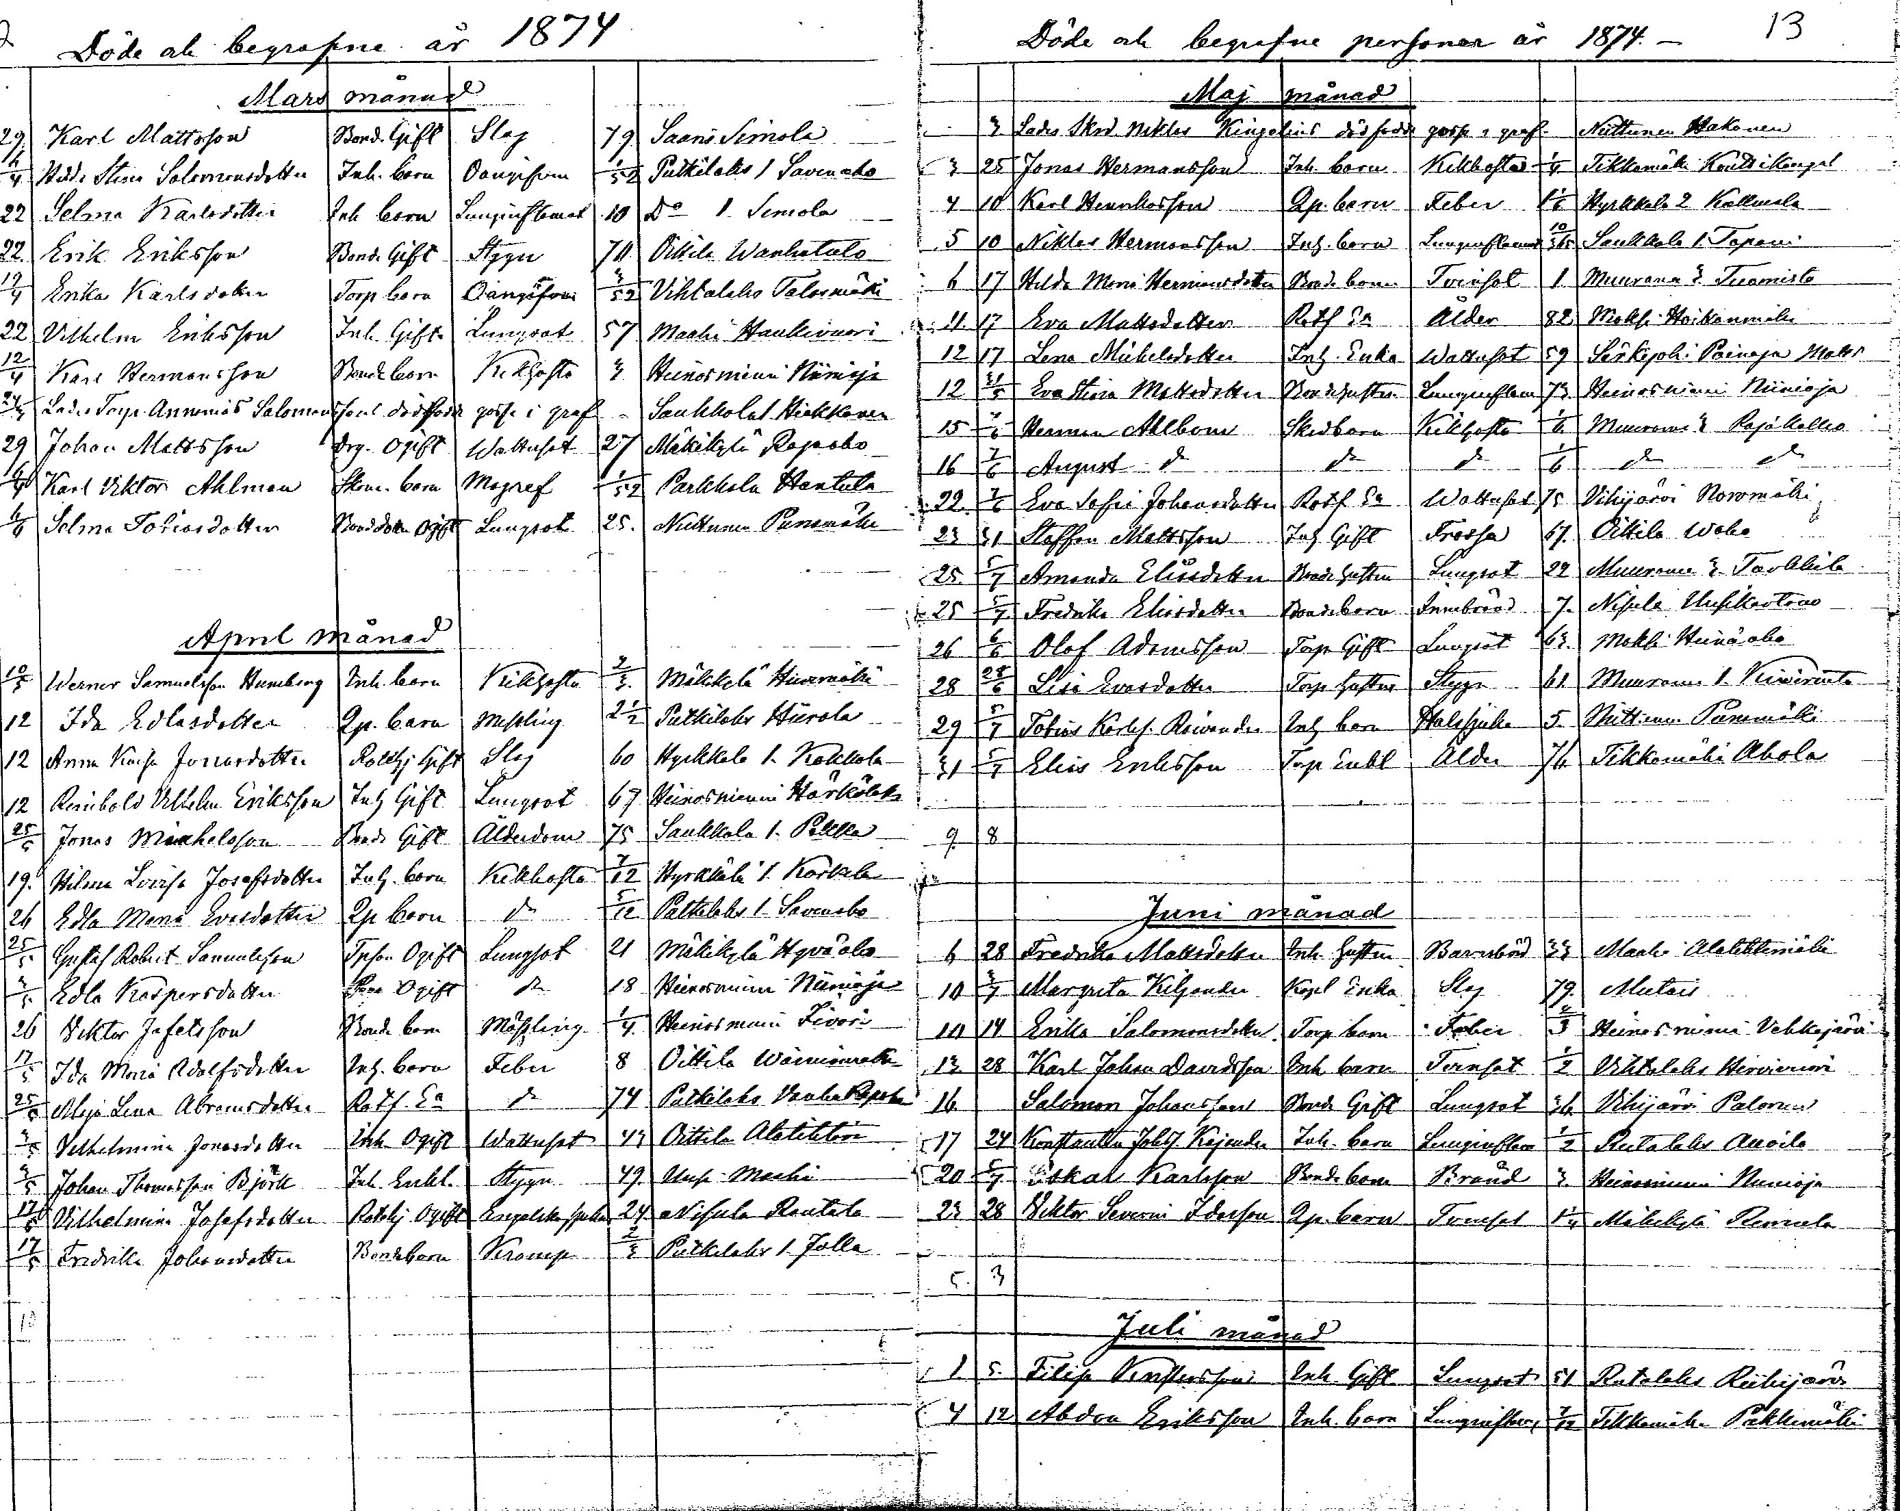 Döde och begrafne år 1874
Mars månad
29 Karl Mattsson Bond. Gift Slag 79 Saani Simola
Hilda Stina Salomonsdotter Inh. barn Oangifven 1/52 Putkilaks 1 Savenaho
22 Selma Karlsdotter Inh barn Lunginflamat 10 Do 1. Simola
22 Erik Eriksson Bond. Gift Stygn 70 Oittila Wanhatalo
19/4 Erika Karlsdotter Torp barn Oangifven 3/52 Vihtalaks Talasmäki
22 Vilhelm Eriksson Inh. Gift Lungsot 57 Maahi Haukivuori
12/4 Karl Hermansson Bonde barn Kikhosta 3 Heinosniemi Niinioja
Lades Torp. Ananias Salomonssons dödfödde gosse i graf - Saukkola 1 Hiekkanen
29 Johan Mattsson Drg. Ogift Wattusot 27 Mäkikylä Rapaaho
6/4 Karl Viktor Ahlman barn Magref 1/52 Parkkola Hantula
6/4 Selma Tobiasdotter Bonddotr Ogift Lungsot 25. Nuttunen Punamäki
April månad
10/5 Werner Samuelsson Humberg Inh. barn Kikhosta 2/3 Mäkikylä Hiirimäki
12 Ida Edlasdotter Qp. barn Messling 2 1/2 Putkilaks Hürola
12 Anna Kaisa Jonasdotter Rotehj Gift Slag 60 Hyrkkälä 1. Kokkola
12 Reinhold Vilhelm Eriksson Inh Gift Lungsot 67 Heinosniemi Härkölahti
25/5 Jonas Mickelsson Bond. Gift Ålderdom 75 Saukkola 1. Pekka
19. Hilma Lovisa Josefsdotter Inh. barn Kikhosta 7/12 Hyrkkälä 1. Korkala
26 Edla Maria Evasdotter Qp barn do 5/12 Putkilaks 1 Savenaho
25/5 Gustaf Robert Samuelsson Tpson Ogift Lungsot 21 Mäkikylä Hyväaho
Edla Kaspersdotter Ogift do 18 Heinosniemi Niinioja
26 Viktor Jafetsson Bonde barn Mässling 1/4 Heinosniemi Livori
17/5 Ida Maria Adolfsdotter Inh. barn Feber 8 Oittila
25/5 Maja Lena Abramsdotter Rotf. Ea do 74 Putkilaks Vanha
3/5 Vilhelmina Jonasdotter Inh Ogift Wattusot 43 Oittila Alatilttiri
3/5 Johan Thomasson Björk Inh. Enkl. Stygn 49. Maahi
17/5 Vilhelmina Josefsdotter Rotehj Ogift Engelska sjuka 24 Nisula Rautala
17/5 Fredrika Johansdotter Bondebarn Kramp 2/3 Putkilaks 1. Jalla
13
Döde och begrafne personer år 1874. — 13
Maj månad
3 Lades Skrd Niklas Kingelins dödfödde gosse i graf. Nuttunen Hakonen
3 25 Jonas Hermansson Inh. barn Kikhosta 1/4 Tikkamäki
4 10 Karl Henriksson Qp. barn Feber Hyrkkälä 2 Kallmala
5 10 Niklas Hermansson Inh. barn Lunginflamat 10/365 Saukkola 1. Tapani
6 17 Hilda Maria Hermansdotter Bonde barn Tvinsot 1 Muurame 3. Tuomisto
11 17 Eva Mattsdotter Rotf Ea Ålder 82 Moksi Hoikanmäki
12 17 Lena Mickelsdotter Inh. Enka Wattusot 59 Särkijoki Painoja Matts
12 21/5 Eva Stina Mattsdotter Bondehustru Lunginflam 73 Heinosniemi Niinioja
15 7/6 Herman Ahlbom Skrdbarn Kikhosta 1/6 Muurame 3 Rajakallio
16 7/6 August do do do 1/6 do do
22 7/6 Eva Sofia Johansdotter Rotf Ea Wattusot 75 Vihijärvi Noromäki
23 31 Staffan Mattsson Inh Gift Frossa 67. Oittila Waha
25 5/7 Amanda Eliasdotter Bonde hustru Lungsot 22 Muurame 3. Tarkkila
25 5/7 Fredrika Eliasdotter Bondebarn 7. Nisula Uusikartano
26 6/6 Olof Adamsson Torp Gift Lungsot 63. Moksi Heinäaho
28 28/6 Lisa Evasdotter Torp hustru Stygn 61 Muurame 1. Kiviranta
29 5/7 Tobias Karls. Roivander Inh barn Halssjuka 5. Nuttunen Punamäki
31 5/7 Elias Eriksson Torp Enkl Ålder 76 Tikkamäki Ahola
9 8
Juni månad
6 28 Fredrika Mattsdotter Inh. hustru Barnsbörd 33 Maahi
10 5/7 Margreta Kiljander Kapl Enka Slag 79. Mutais
10 14 Erika Salomonsdotter Torp barn Feber 2/3 Heinosniemi Vehkajärvi
13 28 Karl Johan Davidsson Inh barn Tvinsot 1/2 Vihtalaks Hirvivuori
16 Salomon Johansson Bonde Gift Lungsot 36 Vihijärvi Palonen
17 24 Konstantin Johs. Kejander Inh. barn Lunginflam 1/2 Rutalaks Anoila
20 5/7 Oskar Karlsson Bonde barn Bränd 3. Heinosniemi Niinioja
23 28 Viktor Severin Idasson Qp. barn Tvinsot 1 1/4 Mäkikylä Rimula
5. 3
Juli månad
1 5. Filip Kristersson Inh. Gift Lungsot 51 Rutalaks Riihijärvi
4 12 Abdon Eriksson Inh. barn Lunginflam 7/12 Tikkamäki Pukkimäki